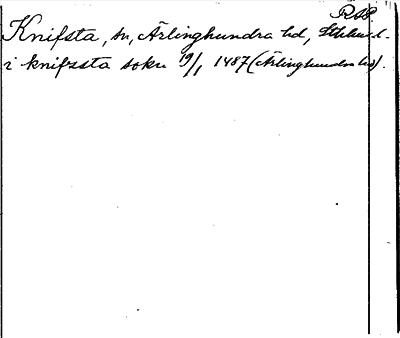 RAP.
Knifsta, sn, Ärlinghundra hd, Sthlms l.
i knifzsta sokn 19/1 1487 (Ärlinghundra hd).